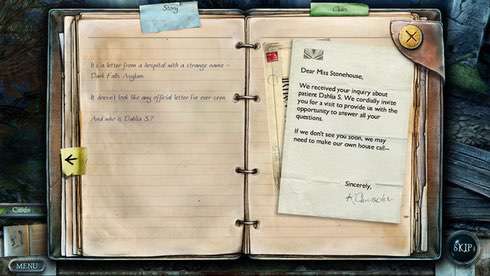 Story
Clues
It's a letter from a hospital with a strange name -
Dark Falls Asylum.
It doesn't look like any official letter I've ever seen.
And who is Dahlia S.?
Dear Miss Stonehouse,
We received your inquiry about
patient Dahlia S. We cordially invite
you for a visit to provide us with the
opportunity to answer all your
questions.
If we don't see you soon, we may
need to make our own house call...
Sincerely,
Cards
MENU
SKIP